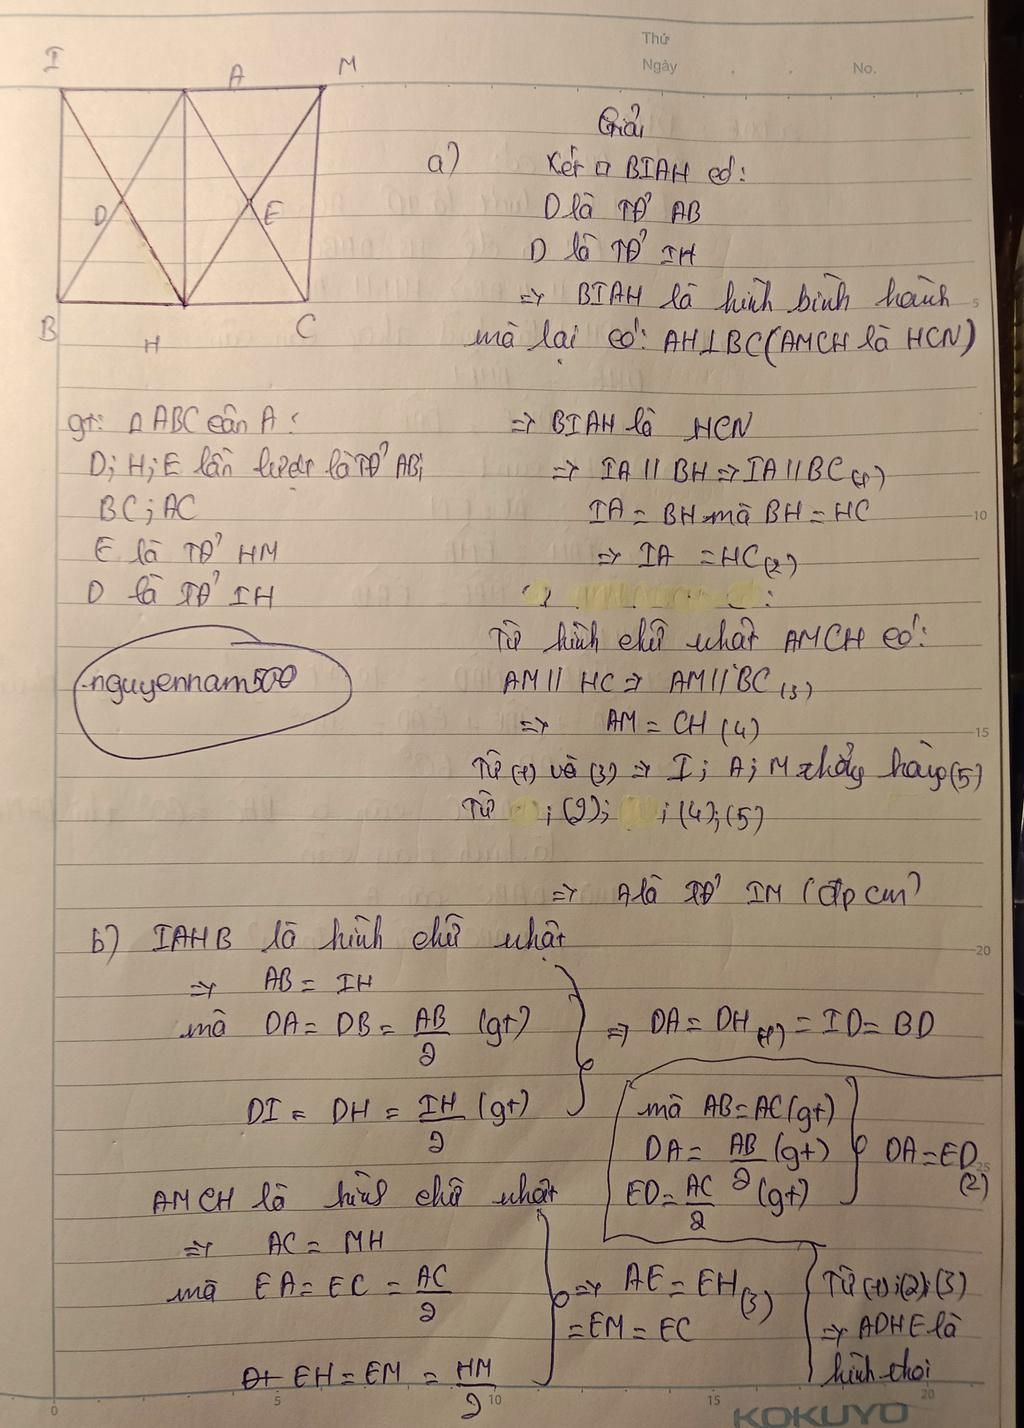 Thứ
Ngày . . No.
I A M
D E
B H C
Giải
a) Xét □ BIAH có:
D là TĐ' AB
D là TĐ' IH
=> BIAH là hình bình hành
mà lại có: AH⊥BC(AMCH là HCN)
gt: Δ ABC cân A:
D; H; E lần lượt là TĐ' AB;
BC; AC
E là TĐ' HM
D là TĐ' IH
nguyennam500
=> BIAH là HCN
=> IA // BH => IA // BC (1)
IA = BH mà BH = HC
=> IA = HC (2)
Từ hình chữ nhật AMCH có:
AM // HC => AM // BC (3)
=> AM = CH (4)
Từ (1) và (3) => I; A; M thẳng hàng (5)
Từ ; (2); ; (4); (5)
=> A là TĐ' IM (đpcm)
b) IAHB là hình chữ nhật
=> AB = IH
mà DA = DB = AB/2 (gt)
DI = DH = IH/2 (gt)
=> DA = DH (1) = ID = BD
mà AB = AC (gt)
DA = AB/2 (gt)
ED = AC/2 (gt)
DA = ED (2)
AMCH là hình chữ nhật
=> AC = MH
mà EA = EC = AC/2
EH = EM = HM/2
=> AE = EH (3)
= EM = EC
Từ (1); (2); (3)
=> ADHE là
hình thoi
5
10
15
20
25
0 5 10 15 20
KOKUYO